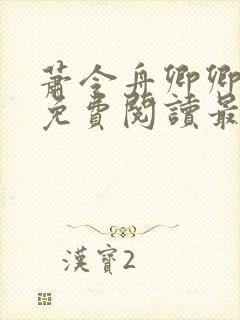 蕭令舟卿卿
免費閱讀最
漢寶2